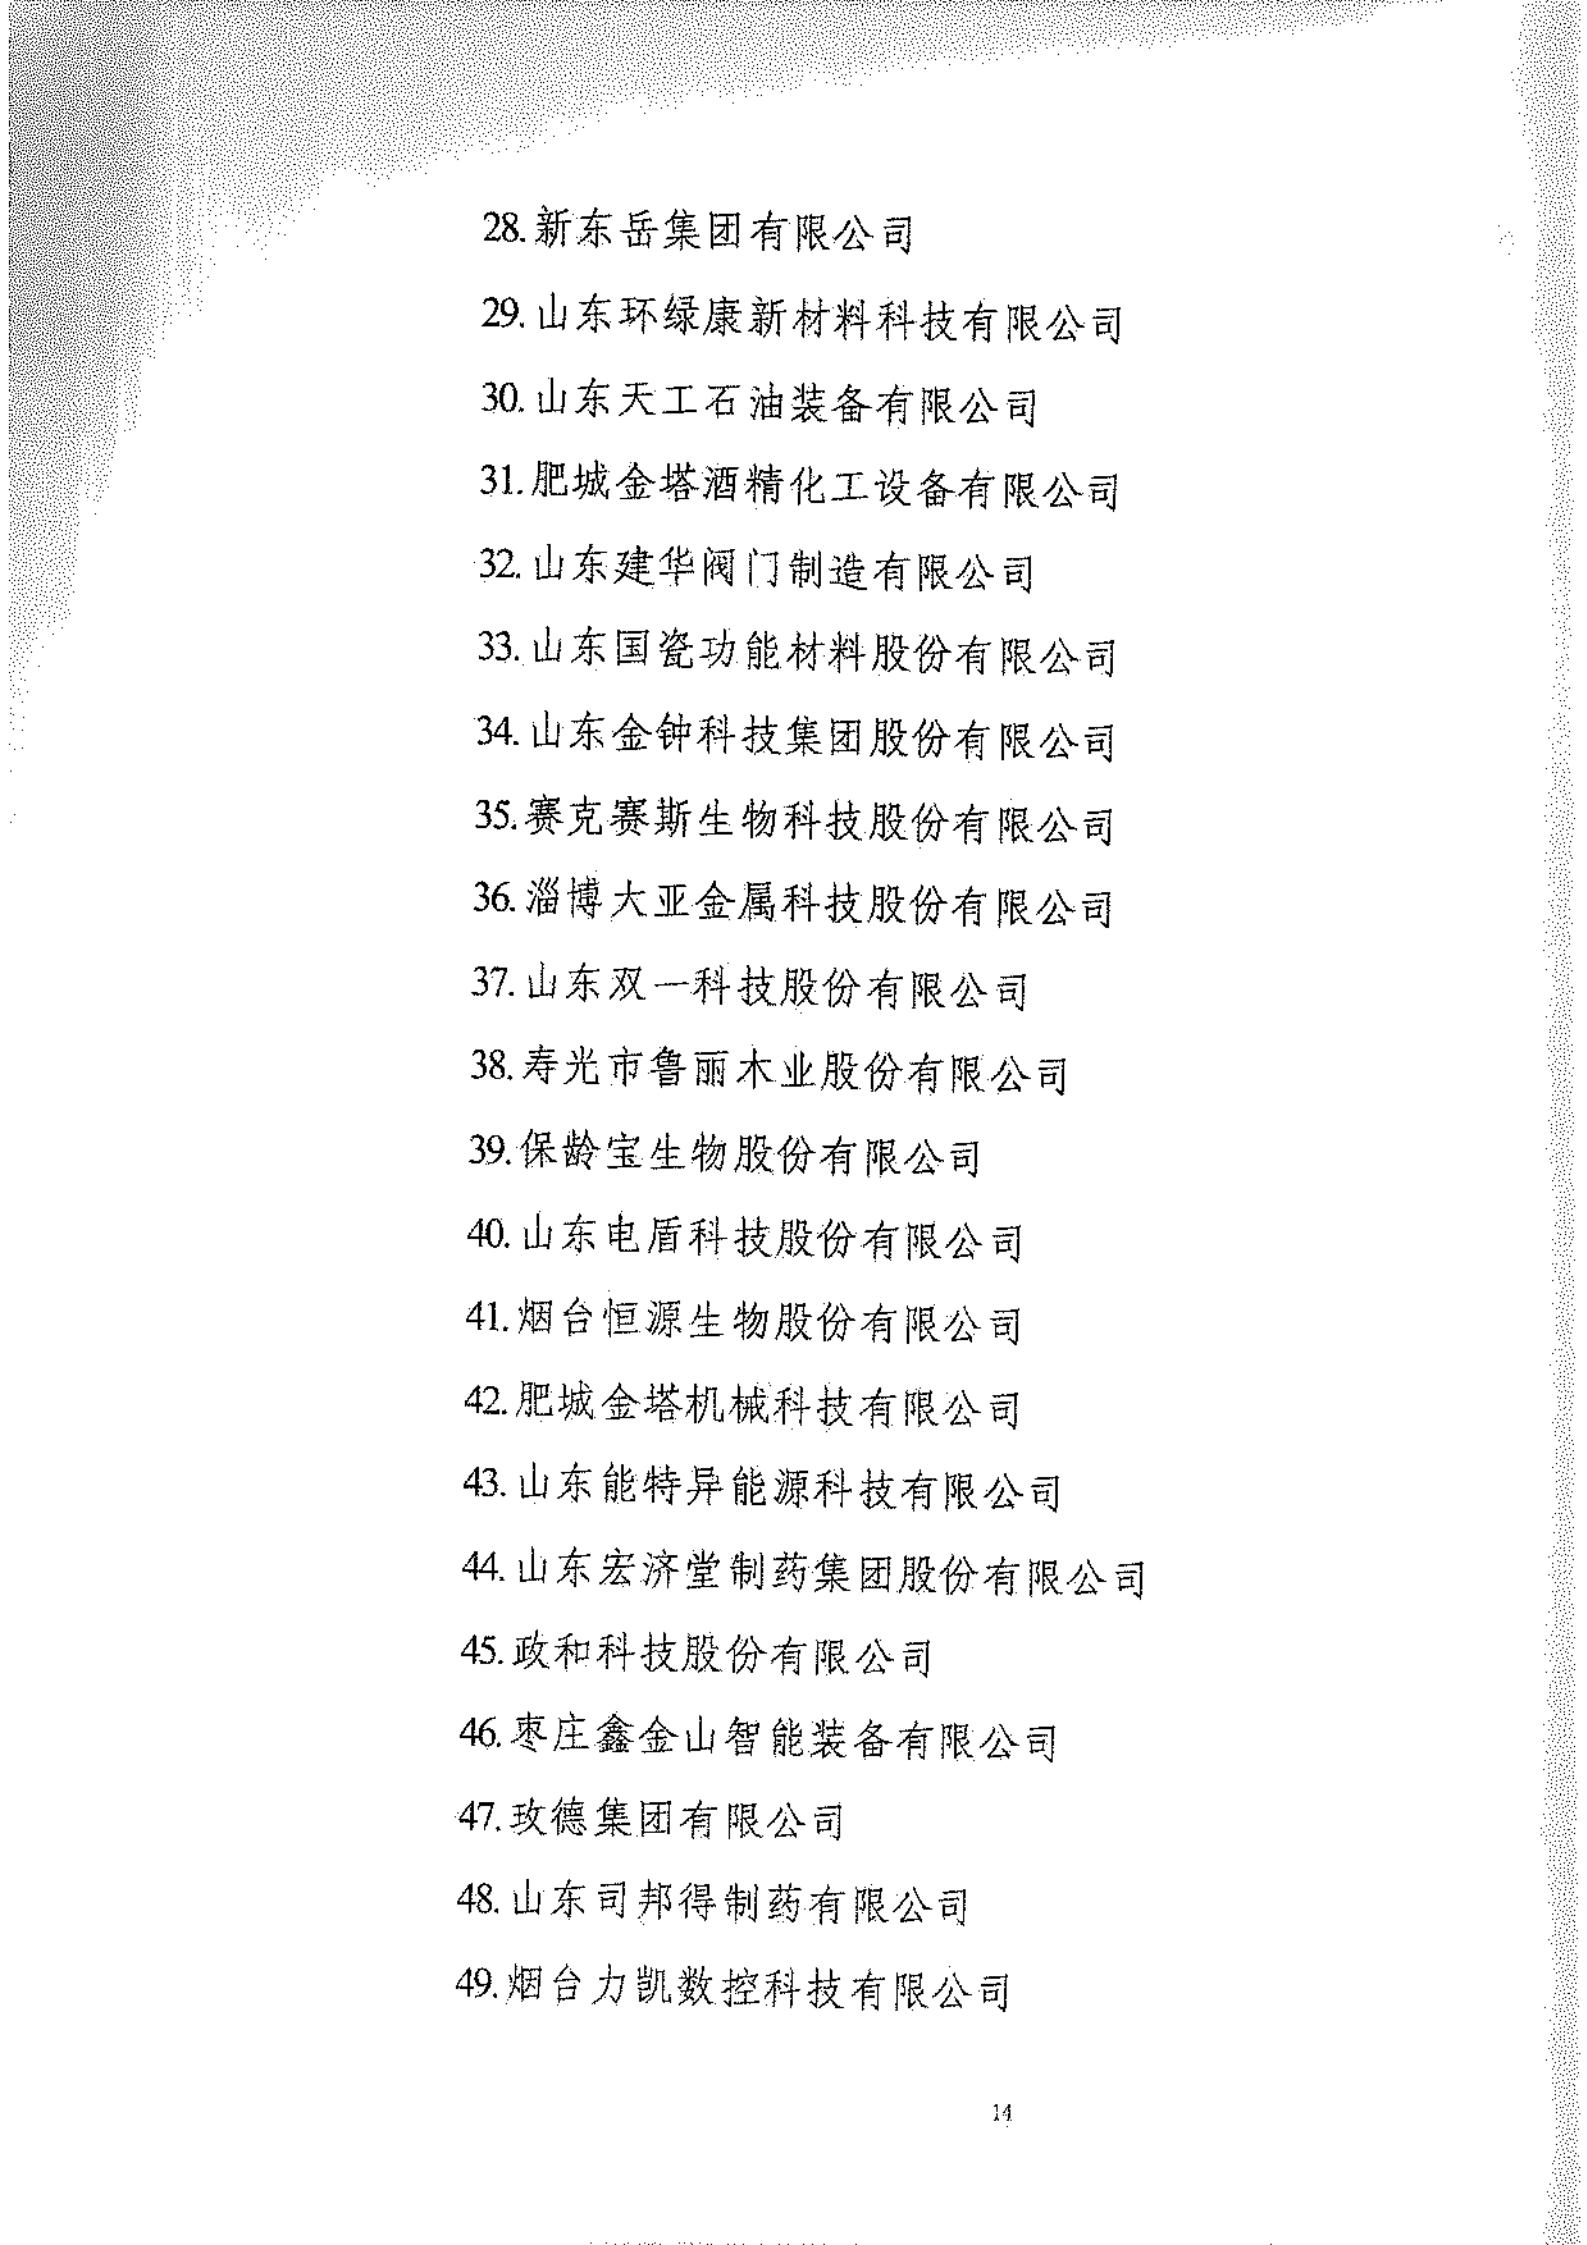 28.新东岳集团有限公司
29.山东环绿康新材料科技有限公司
30.山东天工石油装备有限公司
31.肥城金塔酒精化工设备有限公司
32.山东建华阀门制造有限公司
33.山东国瓷功能材料股份有限公司
34.山东金钟科技集团股份有限公司
35.赛克赛斯生物科技股份有限公司
36.淄博大亚金属科技股份有限公司
37.山东双一科技股份有限公司
38.寿光市鲁丽木业股份有限公司
39.保龄宝生物股份有限公司
40.山东电盾科技股份有限公司
41.烟台恒源生物股份有限公司
42.肥城金塔机械科技有限公司
43.山东能特异能源科技有限公司
44.山东宏济堂制药集团股份有限公司
45.政和科技股份有限公司
46.枣庄鑫金山智能装备有限公司
47.玫德集团有限公司
48.山东司邦得制药有限公司
49.烟台力凯数控科技有限公司
14